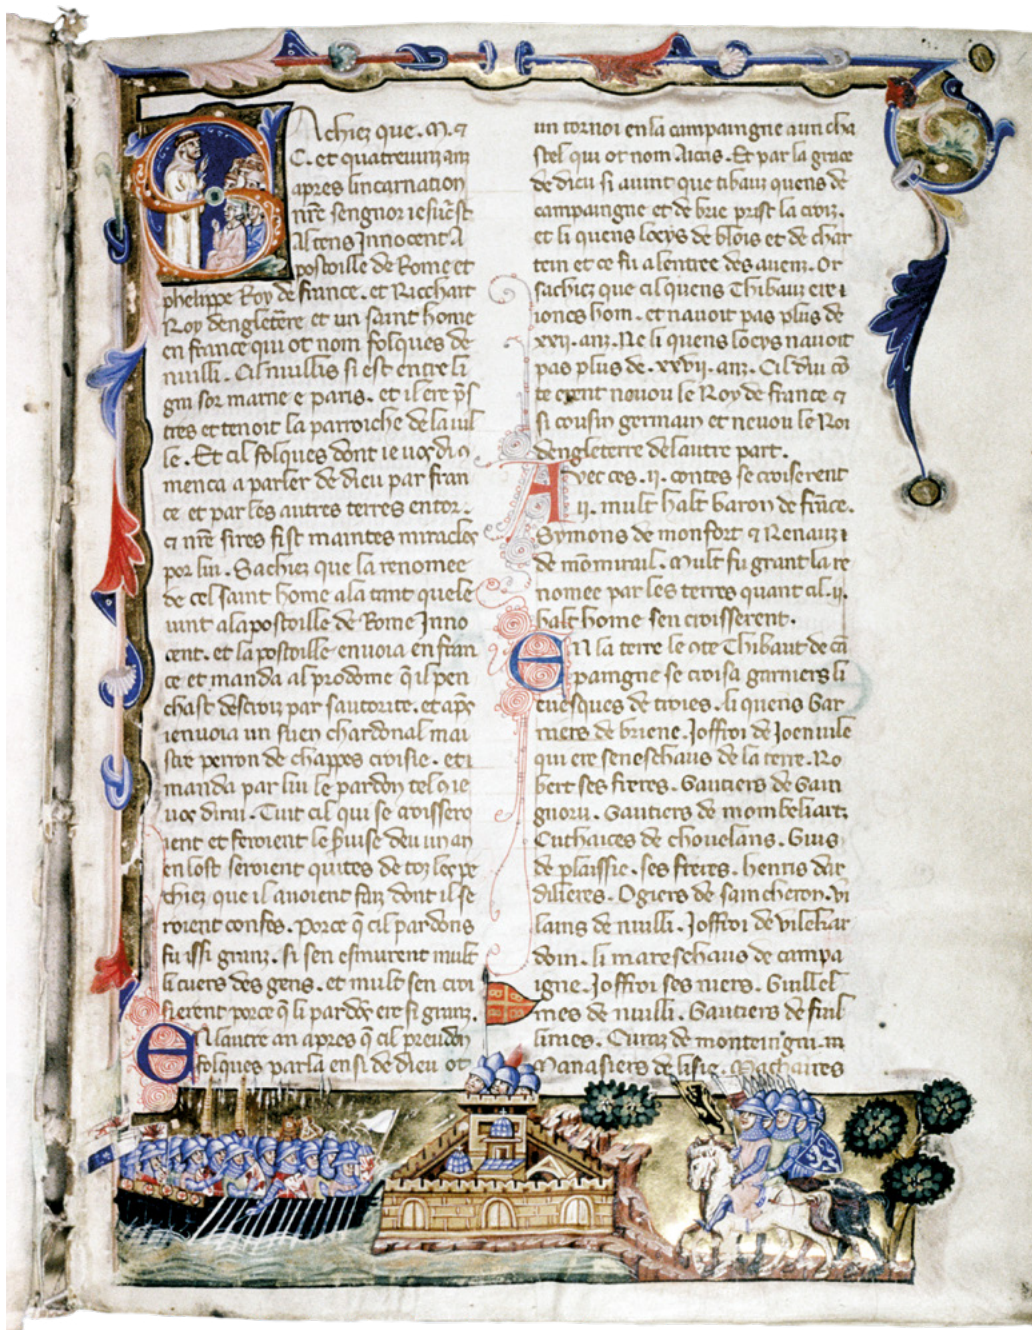 Sachiez que .M. ⁊
C. et quatreuinz anz
apres lincarnation
nr̄e sengnor iesucst
Al tens Innocent A
postoille de Rome et
phelippe Roy de france. et Ricchart
Roy dengleterre et un saint home
en france qui ot nom folques de
nuilli. Cil nuillis si est entre li
gni sor marne e paris. et il ere ps̄
tres et tenoit la parroiche de la uil
le. Et cil folques dont ie uos di
menca a parler de dieu par fran
ce et par les autres terres entor.
⁊ nr̄e sires fist maintes miracles
por lui. Sachiez que la renomee
de cel saint home ala tant quele
uint a lapostoille de Rome Inno
cent. et lapostoille enuoia en fran
ce et manda al prodome q̄ il pen
chast descroiz par sautorite. et aps̄
i enuoia un suen chardonal mai
stre perron de chappes croisie. et i
manda par lui le pardon tel 9 ie
uos dirai. Tuit cil qui se croissero
ient et feroient le seruise deu un an
en lost seroient quites de toz les pe
chiez que il auoient faiz dont il se
roient confes. Porce q̄ cil pardons
fu issi granz. si sen esmurent mult
li cuers des gens. et mult sen croi
sierent porce q̄ li pardons ere si granz.
En lautre an apres q̄ cil preudon
folques parla ensi de dieu ot
un tornoi en la campaingne a un cha
stel qui ot nom Aicris. Et par la grace
de dieu si auint que tibauz quens de
campaingne et de brie prist la croiz.
et li quens loeys de blois et de char
tein et ce fu a lentree des auenz. Or
sachiez que cil quens Thibauz ere i
iones hom. et nauoit pas plus de
xxii. anz. Ne li quens loeys nauoit
pas plus de .xxvii. anz. Cil dui cō
te erent neuou le Roy de france ⁊
si cousin germain et neuou le Roi
dengleterre de lautre part.
Avec ces .ii. contes se croiserent
.ii. mult halt baron de frāce.
Symons de monfort ⁊ Renauz
de mōmirail. Mult fu grant la re
nomee par les terres quant cil .ii.
halt home sen croisserent.
En la terre le 9te Thibaut de cā
paingne se croisa garniers li
euesques de troies. li quens Gar
niers de briene. Joffroi de Joenuile
qui ere seneschaus de la terre. Ro
bert ses freres. Gautiers de Gain
gnoru. Gautiers de mombeliart.
Euthaices de chouelans. Guis
de plaissie. ses freres. henris dar
dillieres. Ogiers de saincheron. Vi
lains de nuilli. Joffroi de vilehar
doin. li mareschaus de campa
igne. Joffroi ses niers. Guillel
mes de nuilli. Gautiers de fuil
lines. Curaz de monteingni.
Manasiers de lisle. Machaires